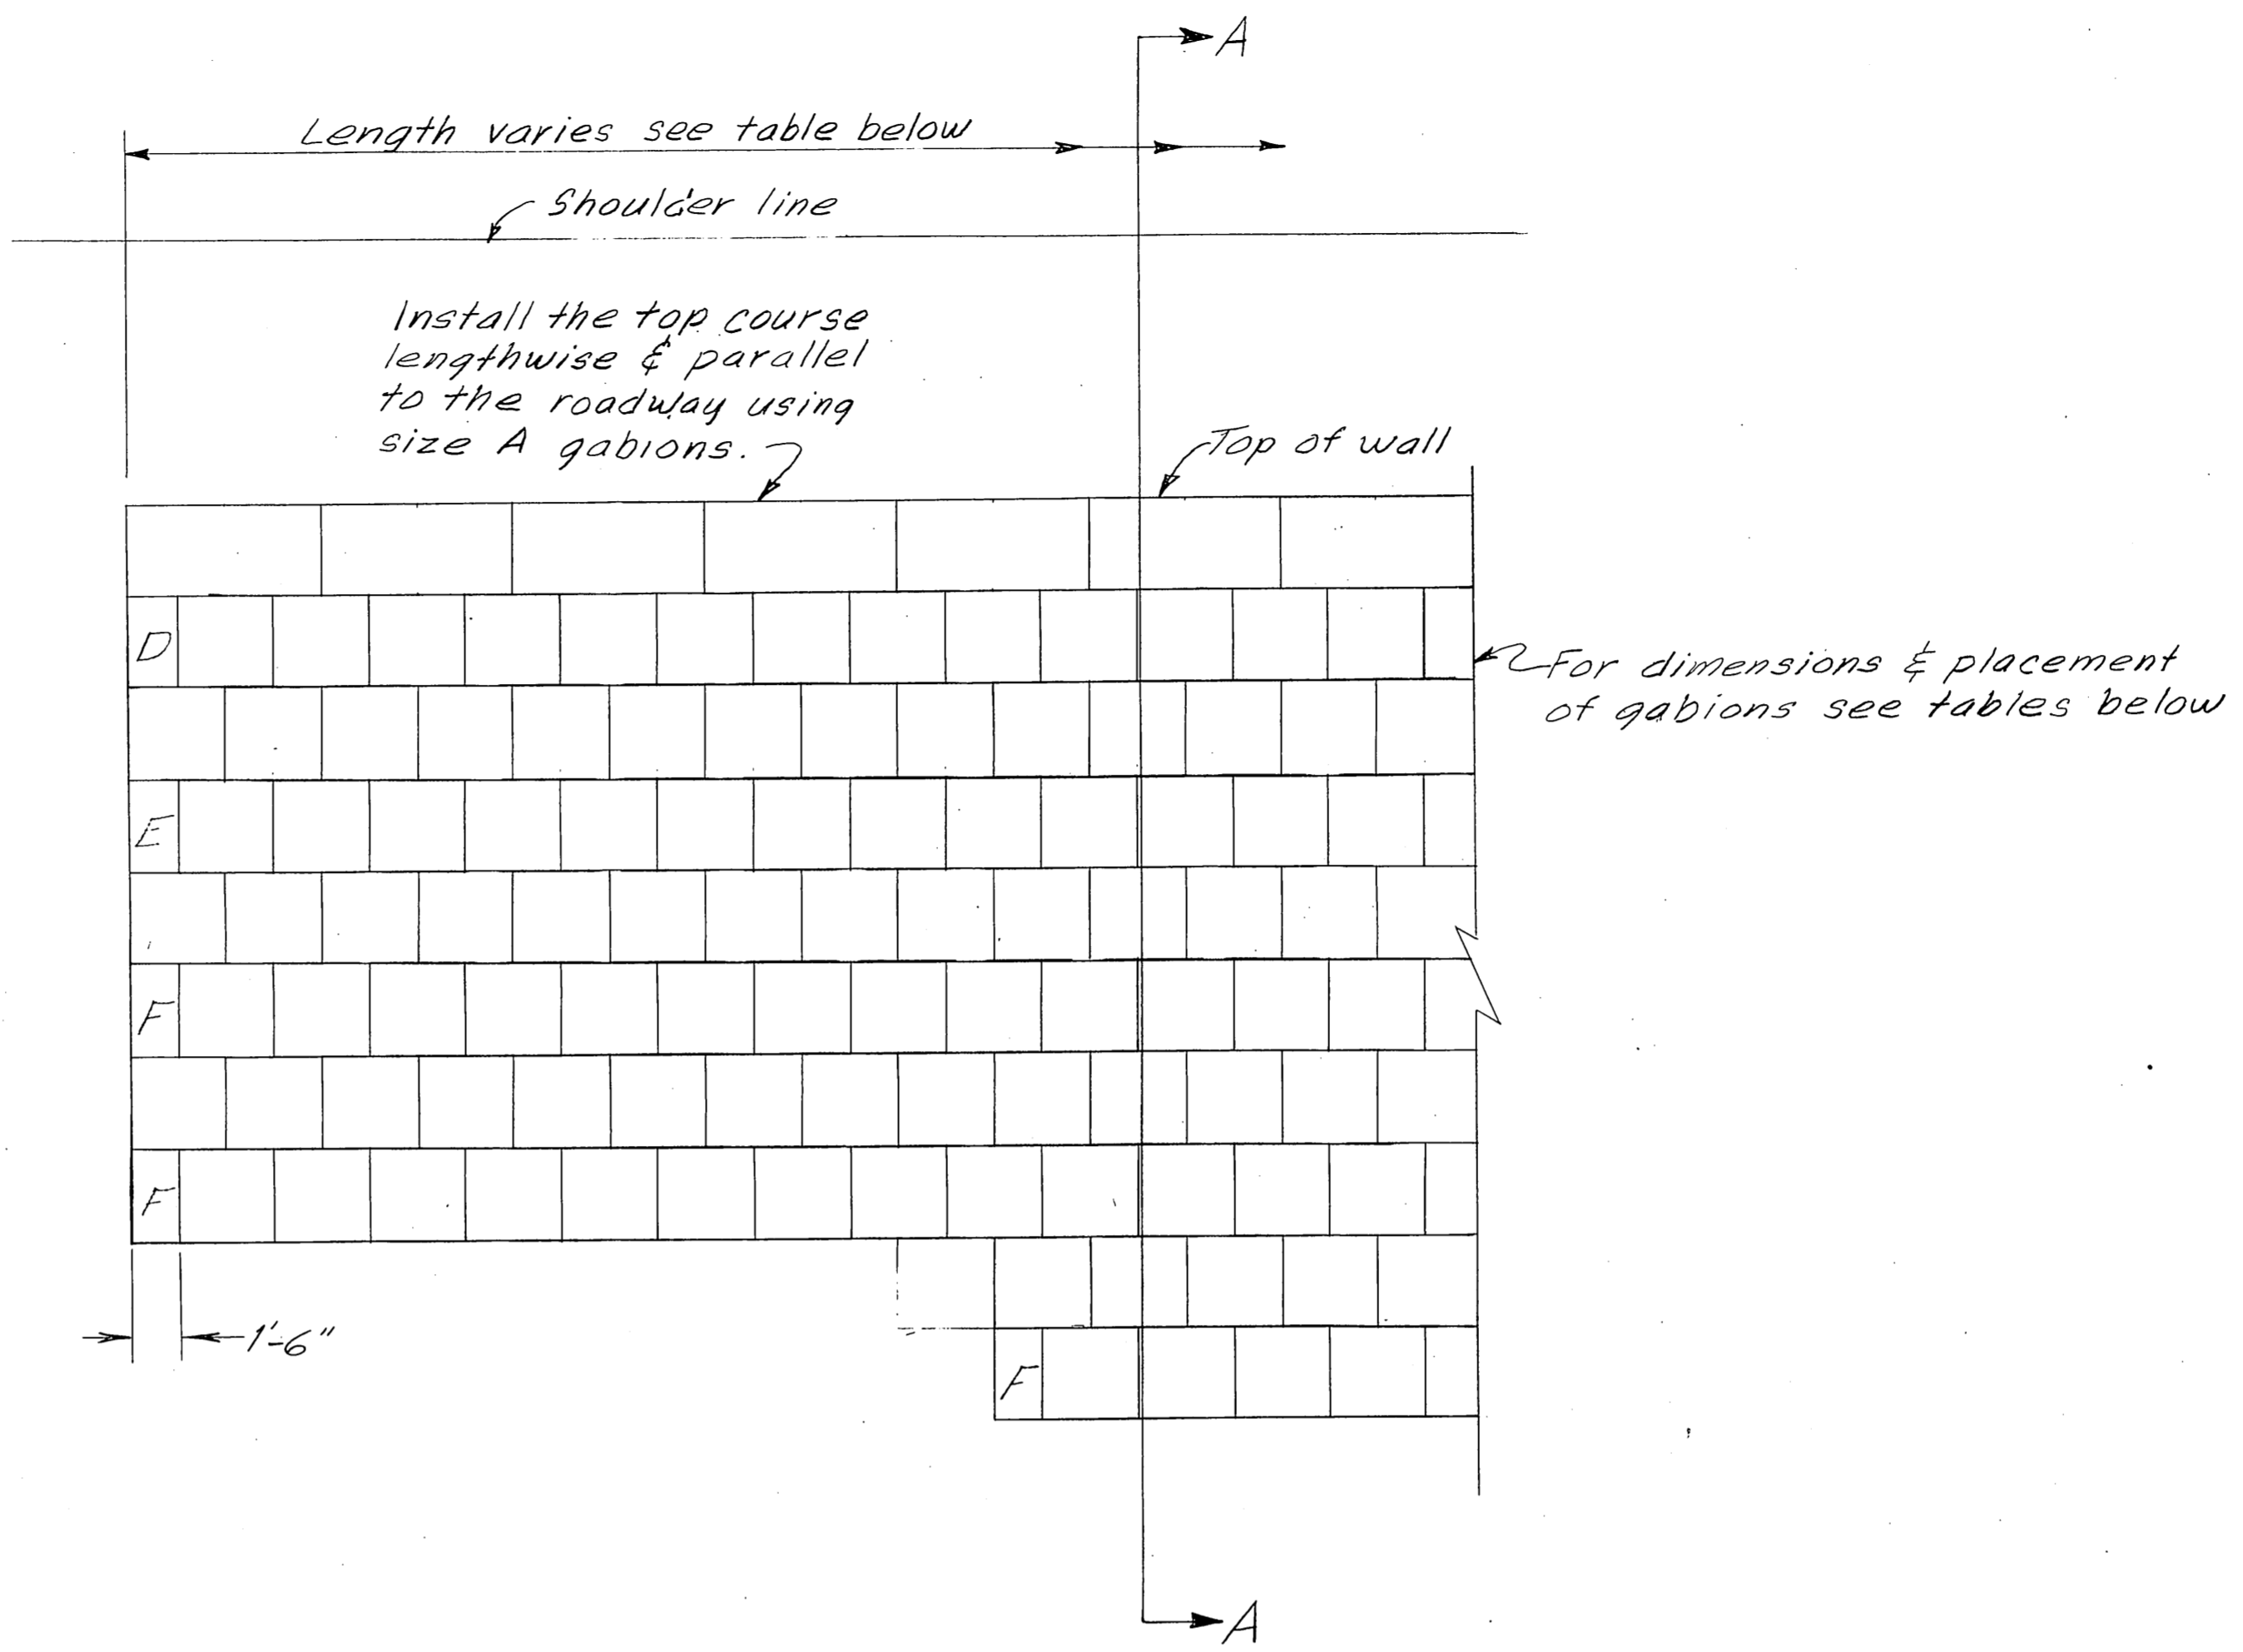 A
Length varies see table below
Shoulder line
Install the top course
lengthwise & parallel
to the roadway using
size A gabions.
Top of wall
D
For dimensions & placement
of gabions see tables below
E
F
F
1'-6"
F
A